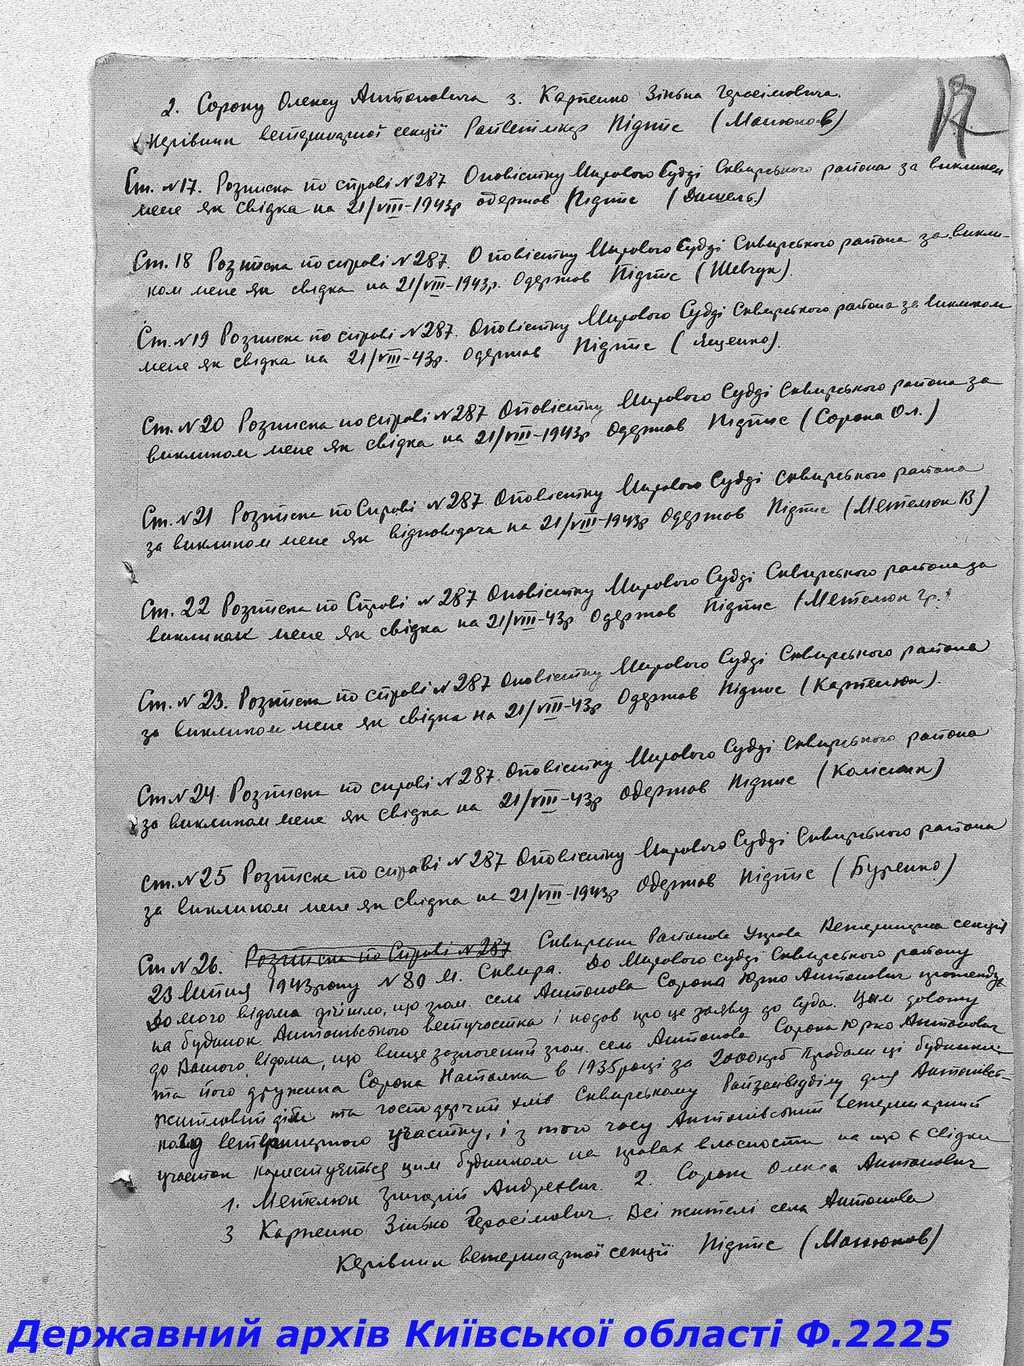 17
2. Сороку Олексу Антоновича 3. Карпенко Зінька Герасімовича.
Керівник ветеринарної секції Підпис (Манюков)
Ст. №17. Розписка по справі №287 Оповістку Мирового Судді Сквирського района за викликом
мене як свідка на 21/VIII-1943р одержав Підпис
Ст. 18 Розписка по справі №287. Оповістку Мирового Судді Сквирського района за викли-
ком мене як свідка на 21/VIII-1943р. Одержав Підпис (Шевчук).
Ст. №19 Розписка по справі №287. Оповістку Мирового Судді Сквирського района за викликом
мене як свідка на 21/VIII-43р. Одержав Підпис (Яценко).
Ст. №20 Розписка по справі №287 Оповістку Мирового Судді Сквирського района за
викликом мене як свідка на 21/VIII-1943р Одержав Підпис (Сорока Ол.)
Ст. №21 Розписка по Справі №287 Оповістку Мирового Судді Сквирського района
за викликом мене як відповідача на 21/VIII-1943р Одержав Підпис (Метелюк В)
Ст. 22 Розписка по Справі №287 Оповістку Мирового Судді Сквирського района за
викликом мене як свідка на 21/VIII-43р Одержав Підпис (Метелюк Гр.)
Ст. №23. Розписка по справі №287 Оповістку Мирового Судді Сквирського района
за викликом мене як свідка на 21/VIII-43р Одержав Підпис (Карпенко).
Ст №24. Розписка по справі №287. Оповістку Мирового Судді Сквирського района
за викликом мене як свідка на 21/VIII-43р Одержав Підпис
Ст. №25 Розписка по справі №287 Оповістку Мирового Судді Сквирського района
за викликом мене як свідка на 21/VIII-1943р Одержав Підпис (Буренко)
Ст №26. Розписка по Справі №287 Сквирська Районова Управа Ветеринарна секція
23 липня 1943 року №80 м. Сквира. До Мирового Судді Сквирського району
До мого відома дійшло, що гром. села Антонова Сорока Юрко Антонович претендує
на будинок Антонівського ветучастка і подав про це заяву до Суда. Цим довожу
до Вашого відома, що вище зазначений гром. села Антонова Сорока Юрко Антонович
та його дружина Сорока Наталка в 1935 році за 2000 крб продали ці будинки:
житловий дім та господарчий хлів Сквирському Райземвідділу для Антонівсь-
кого ветеринарного участку, і з того часу Антонівський ветеринарний
участок користується цим будинком на правах власности на що є свідки
1. Метелюк Григорій Андреєвич. 2. Сорока Олекса Антонович
3 Карпенко Зінько Герасімович. Всі жителі села Антонова
Керівник ветеринарної секції Підпис (Манюков)
Державний архів Київської області Ф.2225